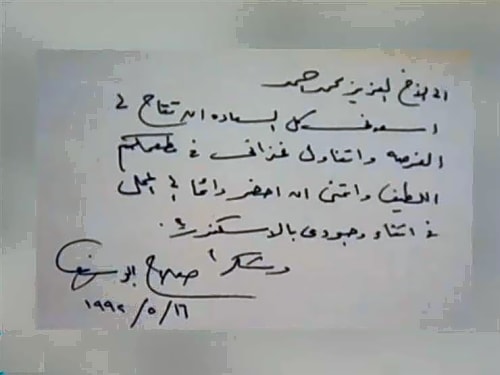 إلى الأخ العزيز محمد أحمد
أسعدني كل السعادة أن تتاح لي
الفرصة واتناول غذائي في مطعمكم
اللطيف واتمنى ان احضر دائما إلى المحل
في اثناء وجودى بالاسكندرية.
وشكرا
١٩٩٢/٥/١٦